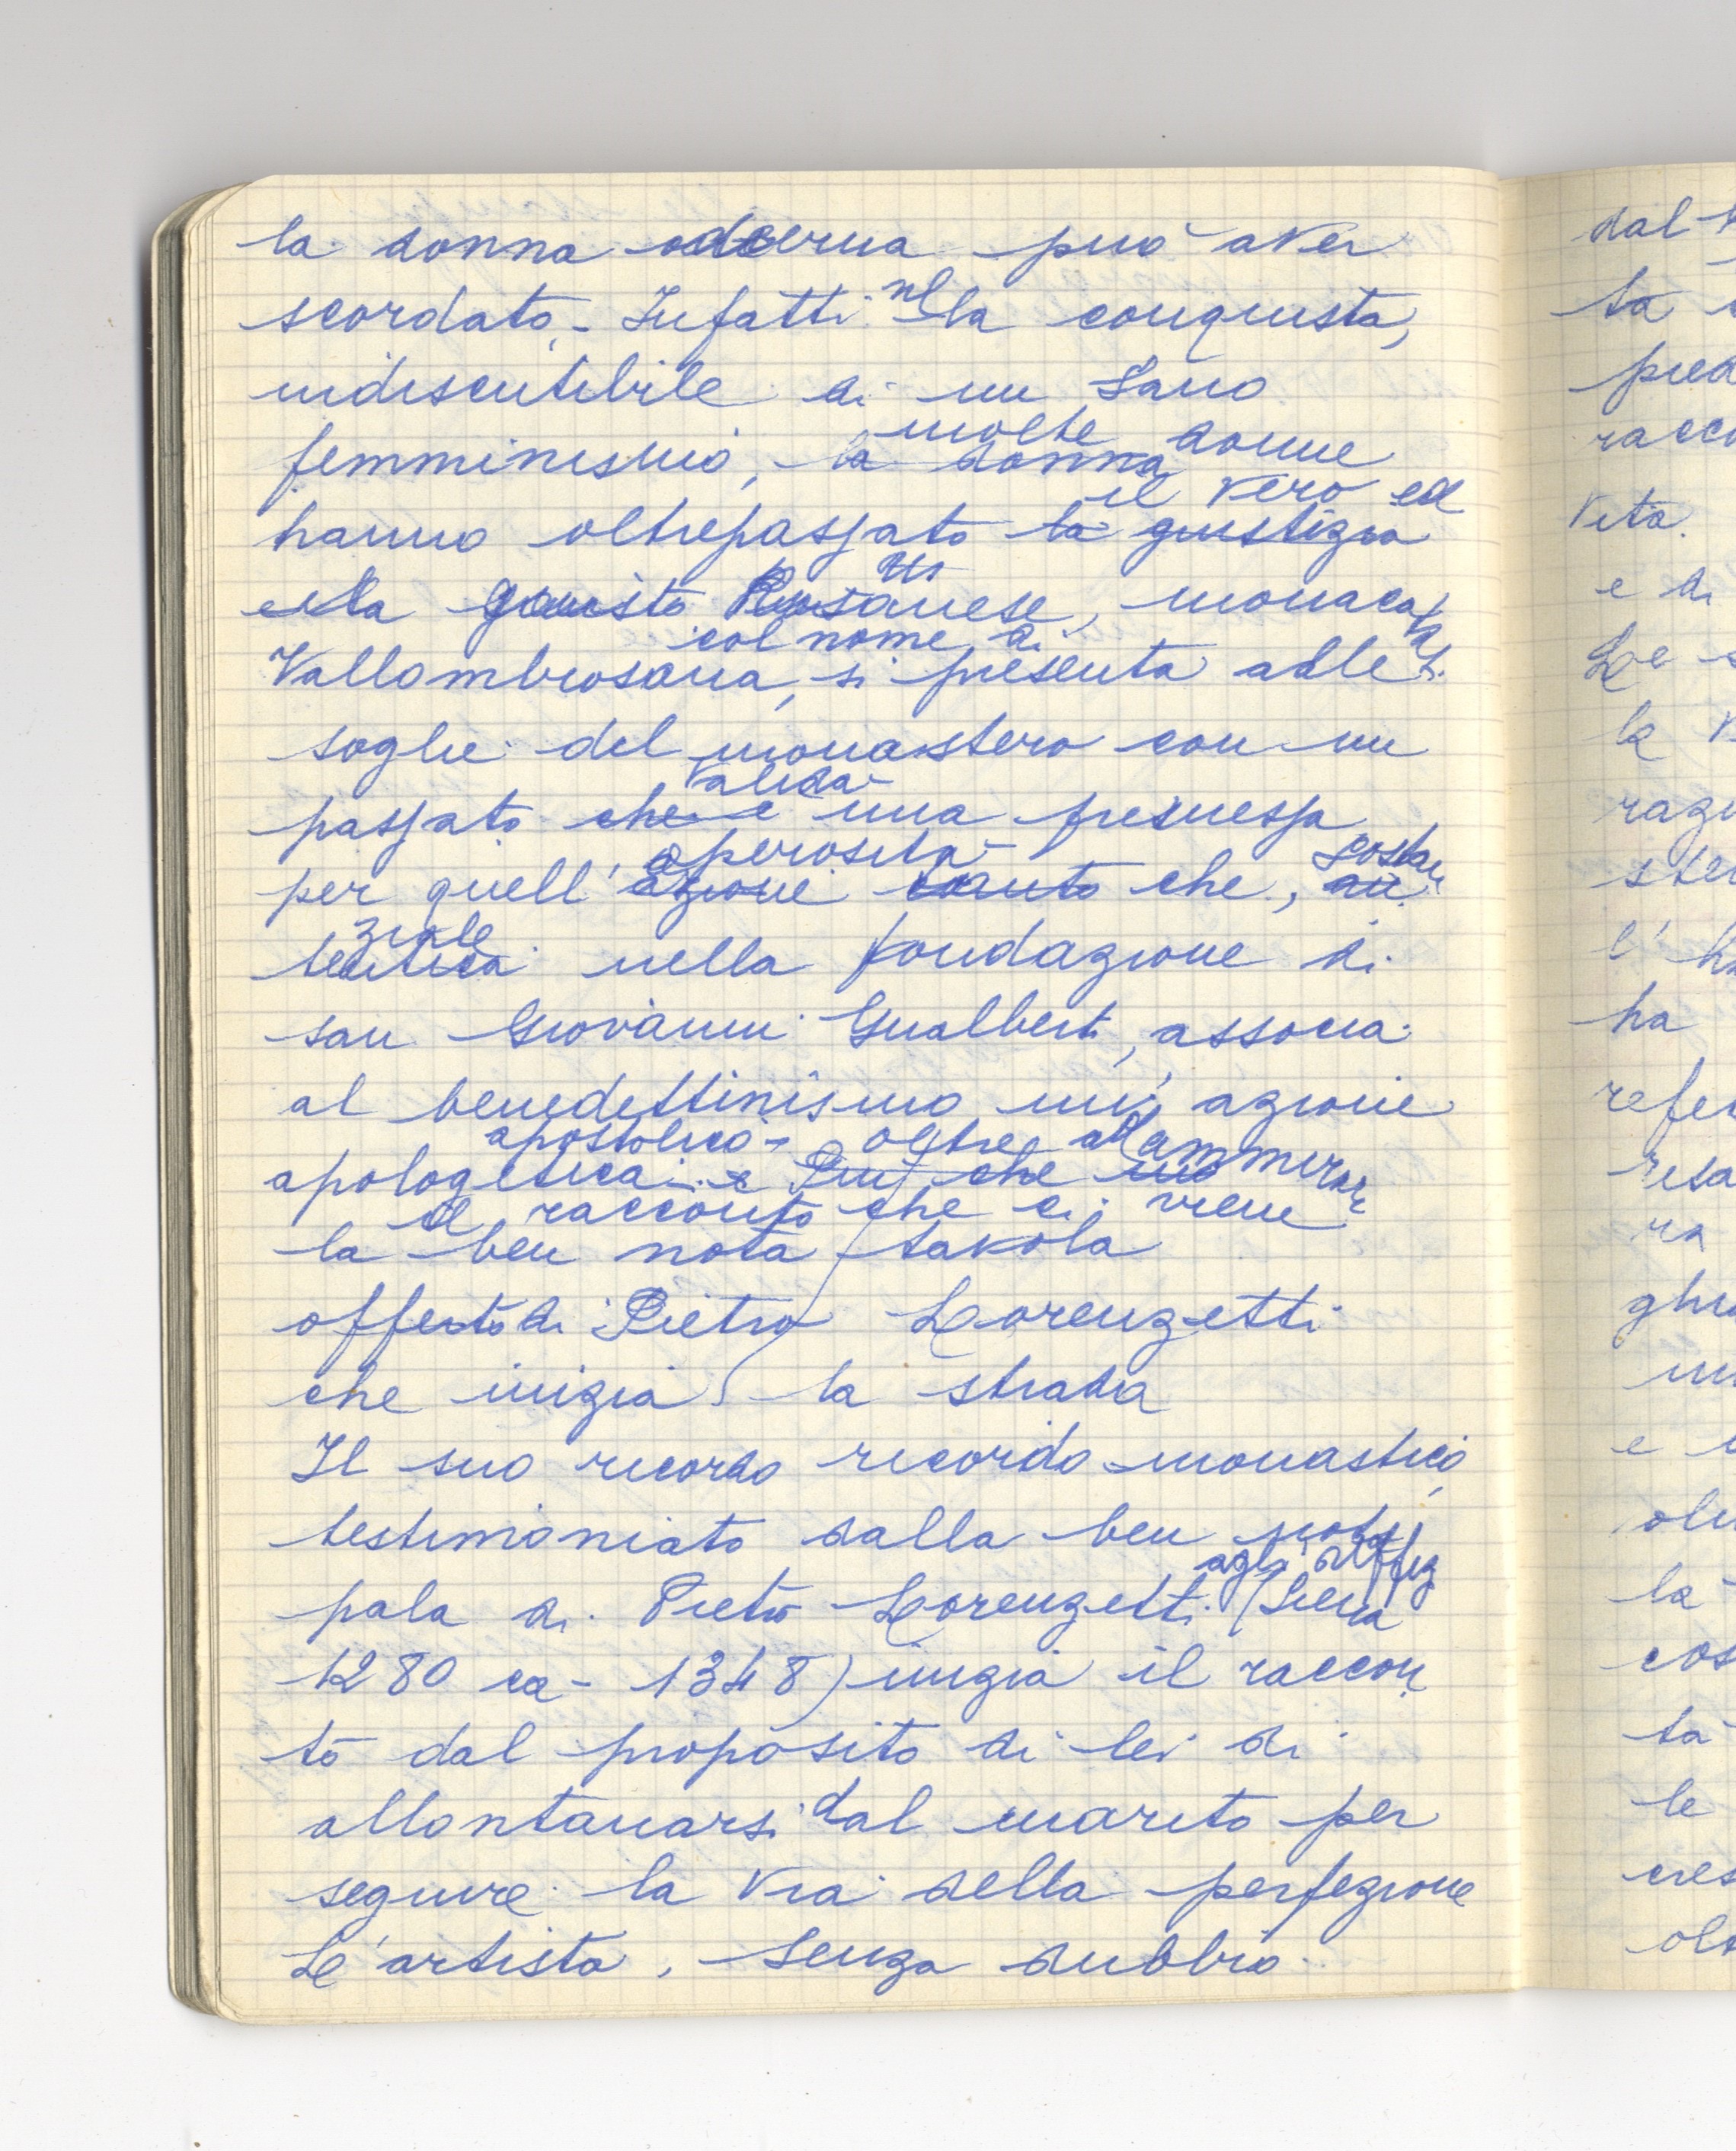 la donna odierna può aver
scordato. Infatti nella conquista,
indiscutibile di un sano
molte donne
femminismo, la donna
il vero ed
hanno oltrepassato la giustizia
giusto
col nome di
Vallombrosana, si presenta alle
soglie del monastero con un
valida
passato che è una premessa
operosità sostan
per quell'azione che, au
ziale
tentica nella fondazione di
san Giovanni Gualberti, associa
al benedettinismo un'azione
apostolica oltre ad ammirare
apologetica e Più che
il racconto che ci viene
la ben nota tavola
offerto di Pietro Lorenzetti
che inizia la strada
Il suo ricordo ricordo monastico,
testimoniato dalla ben nota
agli Uffiz
pala di Pietro Lorenzetti (Siena
1280 ca - 1348) inizia il raccon
to dal proposito di lei di
allontanarsi dal marito per
seguire la via della perfezione
L'artista, senza dubbio
dal
ta
pied
racco
vita.
e di
Le s
la
razi
ste
l'
ha
refe
resa
ra
e
la
cos
ta
le
cres